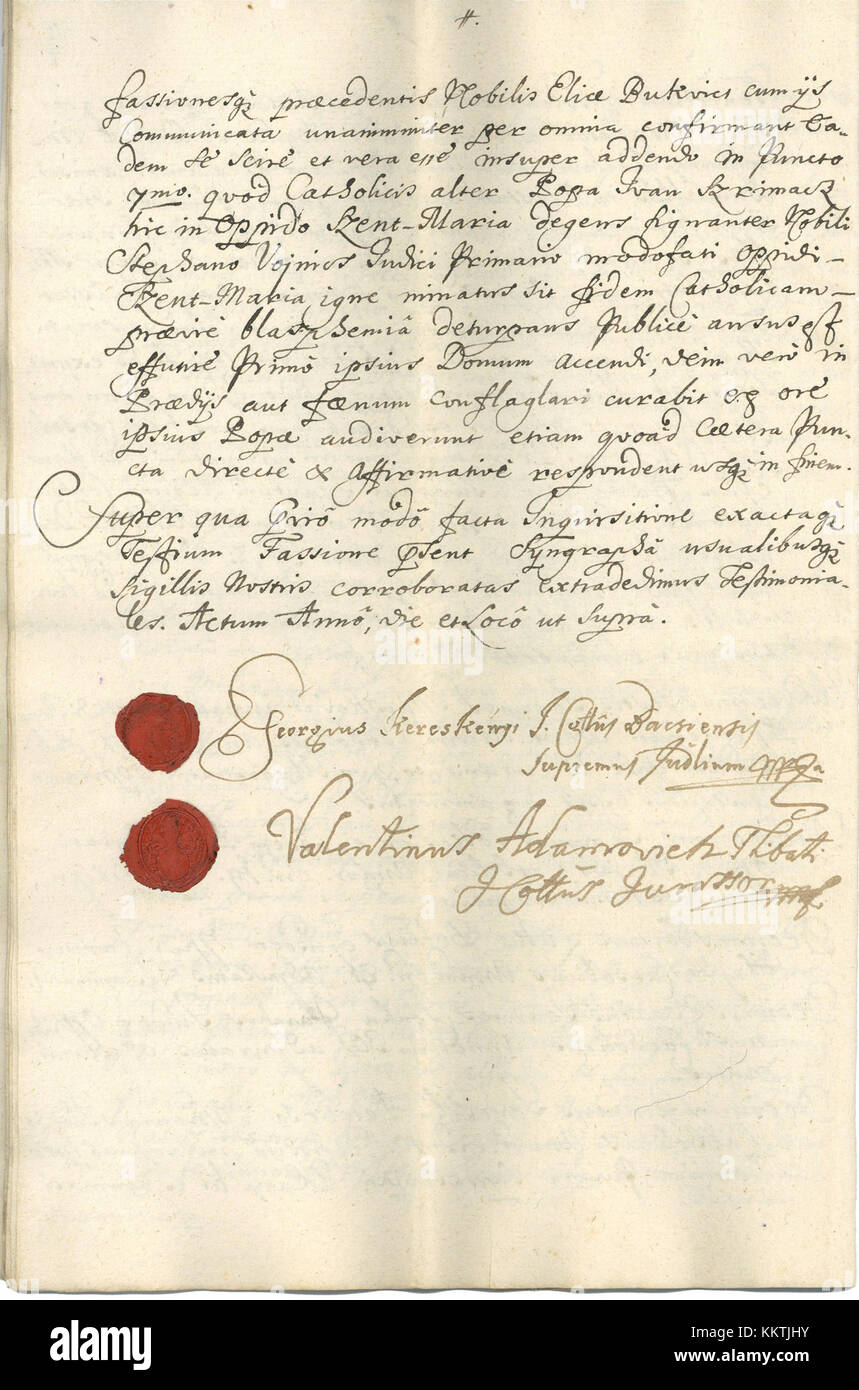 #.
fassionesq̃ præcedentis Nobilis Eliæ Bukvics cum ijs
Communicata unanimmiter per omnia confirmant Ea-
dem se scire et vera esse insuper addendo in Puncto
7mo. quod Catholicis alter Popa Ivan Szrimacz
hic in Oppido Szent-Maria degens signanter Nobili
Stephano Vojnics Judici Primario modofati Oppidi-
Szent-Maria igne minatus sit fidem Catholicam-
præviè blasphemiâ deturpans Publicè ausus est
effutire Primò ipsius Domum accendi, dein verò in
Prædijs aut fœnum conflaglari curabit ex ore
ipsius Popæ audiverunt etiam quoad Cætera Pun-
cta directè & Affirmativè respondent usq̃ in finem.
Super qua modô facta Inquisitione exactaq̃
Testium Fassione Syngraphâ usualibusq̃
sigillis Nostris corroboratas extradedimus Testimonia-
les. Actum Annô, die et Locô ut suprà.
Georgius Kereskényi I. Cottûs Bacsiensis
Supremus Judlium mpa
Valentinus Adamovich
I Cottûs Jurassor mp
alamy
Image ID: KKTJHY
www.alamy.com